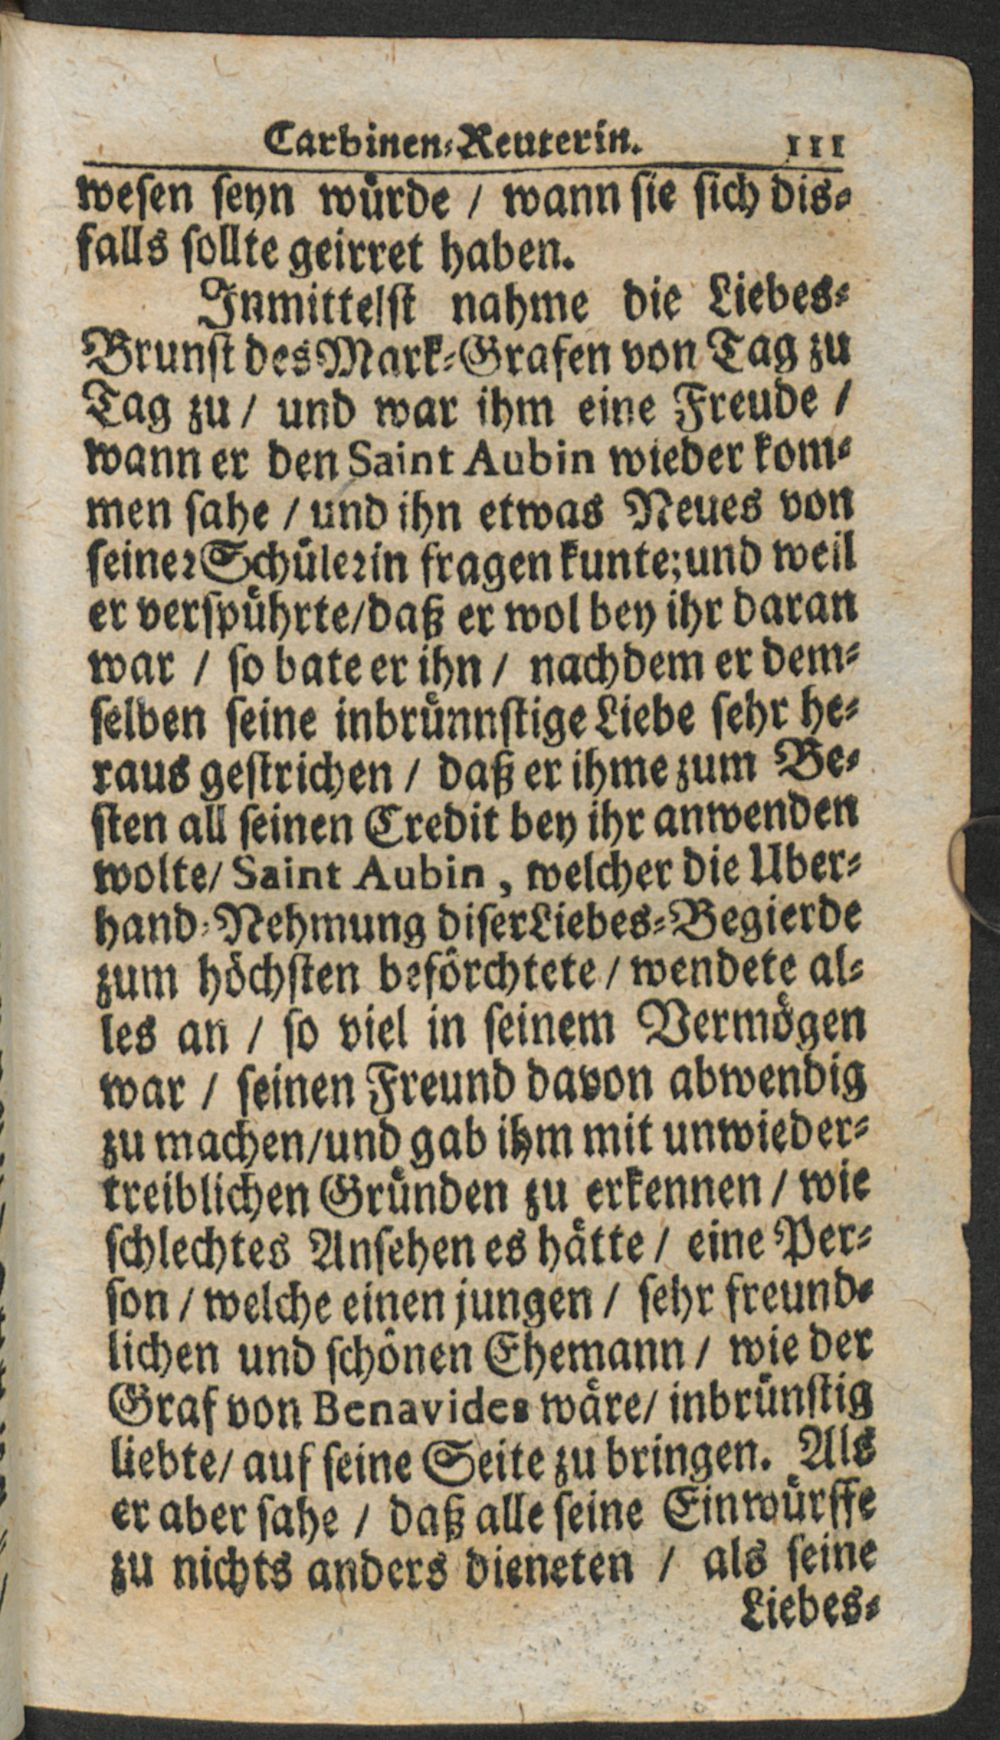 Carbinen-Reuterin. 111
wesen seyn würde / wann sie sich dis-
falls sollte geirret haben.
Inmittelst nahme die Liebes-
Brunst des Mark-Grafen von Tag zu
Tag zu / und war ihm eine Freude /
wann er den Saint Aubin wieder kom-
men sahe / und ihn etwas Neues von
seiner Schülerin fragen kunte; und weil
er verspührte/daß er wol bey ihr daran
war / so bate er ihn / nachdem er dem-
selben seine inbrünnstige Liebe sehr he-
raus gestrichen / daß er ihme zum Be-
sten all seinen Credit bey ihr anwenden
wolte/ Saint Aubin, welcher die Uber-
hand-Nehmung diser Liebes-Begierde
zum höchsten beförchtete / wendete al-
les an / so viel in seinem Vermögen
war / seinen Freund davon abwendig
zu machen/und gab ihm mit unwieder-
treiblichen Gründen zu erkennen / wie
schlechtes Ansehen es hätte / eine Per-
son / welche einen jungen / sehr freund-
lichen und schönen Ehemann / wie der
Graf von Benavides wäre/ inbrünstig
liebte/ auf seine Seite zu bringen. Als
er aber sahe / daß alle seine Einwürffe
zu nichts anders dieneten / als seine
Liebes-